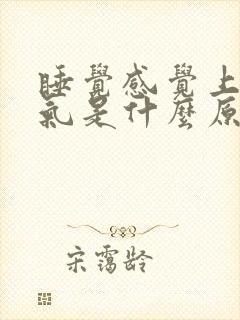 睡覺感覺上
氣是什麼原
宋靄齡